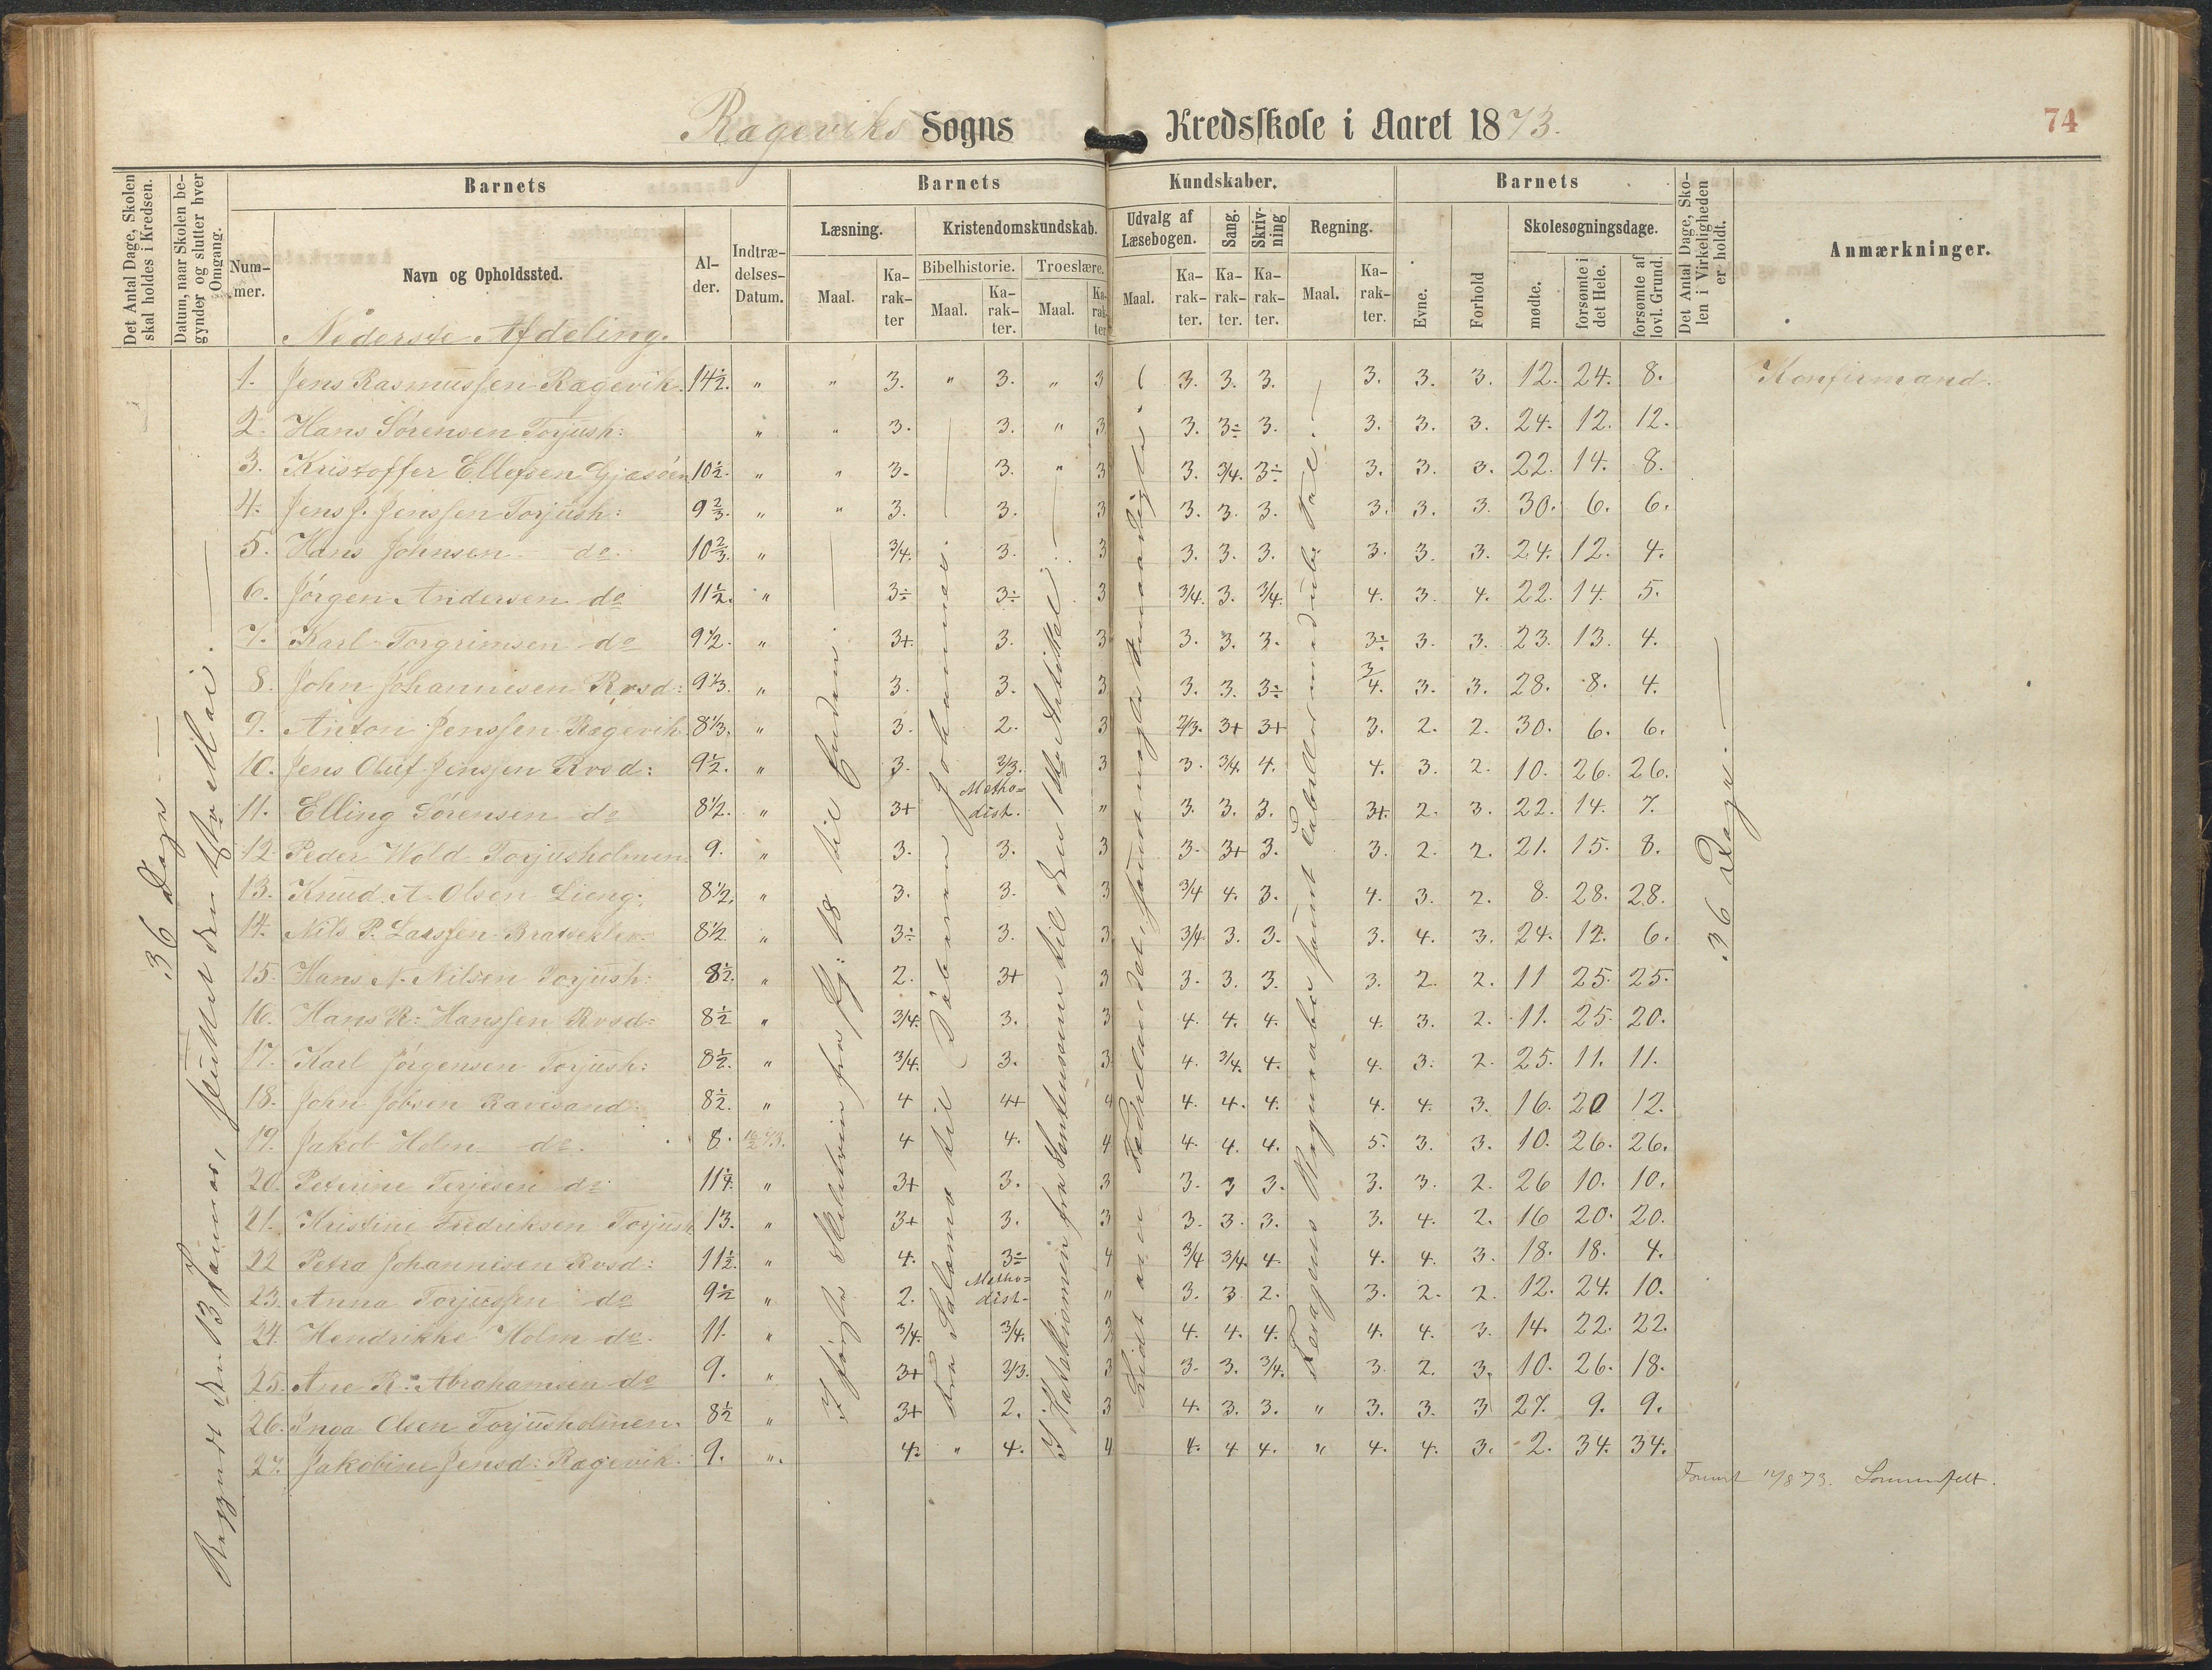 Rageviks Sogns Kredsskole i Aaret 1873.
74
Det Antal Dage, Skolen skal holdes i Kredsen.
Datum, naar Skolen begynder og slutter hver Omgang.
Barnets
Barnets
Kundskaber.
Barnets
Det Antal Dage, Skolen i Virkeligheden er holdt.
Anmærkninger.
Nummer.
Navn og Opholdssted.
Alder.
Indtrædelses-Datum.
Læsning.
Kristendomskundskab.
Udvalg af Læsebogen.
Sang.
Skrivning
Regning.
Evne.
Forhold
Skolesøgningsdage.
Bibelhistorie.
Troeslære.
Maal.
Karakter
Maal.
Karakter.
Maal.
Karakter
Maal.
Karakter.
Karakter.
Karakter.
Maal.
Karakter.
mødte.
forsømte i det Hele.
forsømte af lovl. Grund.
Nederste Afdeling.
36 Dage
Begyndt den 13 Januar, sluttet den 1ste Mai.
1. Jens Rasmussen Ragevik. 14½. " " 3. " 3. " 3 3. 3. 3. 3. 3. 3. 12. 24. 8. Konfirmand.
2. Hans Sørensen Torjush: " " 3. 3. " 3 3. 3÷ 3. 3. 3. 3. 24. 12. 12.
3. Kristoffer Ellefsen Gjæsøen 10½. " " 3. 3. " 3 3. 3/4. 3÷ 3. 3. 3. 22. 14. 8.
4. Jens J. Jenssen Torjush: 9⅔. " " 3. 3. 3 3. 3. 3. 3. 3. 3. 30. 6. 6.
5. Hans Johnsen do. 10⅔. " 3/4. 3. 3 3. 3. 3. 3. 3. 3. 24. 12. 4.
6. Jørgen Andersen do 11½. " 3÷ 3÷ 3 3/4. 3. 3/4. 4. 3. 4. 22. 14 5.
7. Karl Torgrimsen do 9½. " 3+ 3. 3 3. 3. 3. 3÷ 3. 3. 23. 13. 4.
8. John Johannesen Rosd: 9⅓. " 3. 3. 3 3. 3. 3÷ 3/4. 3. 3. 28. 8. 4.
9. Anton Jenssen Ragevik 8⅓. " 3. 2. 3 2/3. 3+ 3+ 3. 2. 2. 30. 6. 6.
10. Jens Oluf Jenssen Rosd: 9½. " 3. 2/3. 3 3. 3/4. 4. 4. 3. 2. 10. 26. 26.
11. Elling Sørensen do 8½. " 3+ Methodist. " 3. 3. 3. 3+. 2. 3. 22. 14. 7.
12 Peder Wold Torjusholmen 9. " 3. 3. 3 3. 3+ 3. 3. 2. 2. 21. 15. 8.
13. Knud A. Olsen Lieng: 8½. " 3. 3. 3 3/4 4. 3. 4. 3. 2. 8. 28. 28.
14. Nils P. Larssen 8½. " 3÷ 3. 3 3/4. 3. 3. 3. 4. 3. 24. 12. 6.
15. Hans N. Nilsen Torjush: 8½. " 2. 3+ 3 3. 3. 3. 3. 2. 2. 11 25. 25.
16. Hans R: Hanssen Rosd: 8½ " 3/4. 3. 3 4. 4. 4. 4. 3. 2. 11. 25. 20.
17. Karl Jørgensen Torjush: 8½. " 3/4. 3. 3 4. 3/4. 4. 4. 3. 2. 25. 11. 11.
18. John Jobsen Ravesand 8½. " 4 4+ 4 4. 4. 4. 4. 4. 3. 16. 20 12.
19. Jakob Holm do. 8. 4 4. 4 4. 4. 4. 5. 3. 3. 10. 26. 26.
20. Peterine Terjesen do 11¼. " 3+ 3. 3 3. 3 3. 3. 3. 2. 26 10. 10.
21. Kristine Fredriksen Torjush 13. " 3+ 3. 3 3. 3. 3. 3. 4. 2. 16 20. 20.
22 Petra Johannesen Rosd: 11½. " 4. 3÷ 4 3/4 3/4. 4. 4. 4. 3. 18. 18. 4.
23. Anna Torjussen do 9½ " 2. Methodist. " 3. 3 2. 3. 2. 2. 12. 24. 10.
24. Hendrikke Holm do. 11. " 3/4. 3/4. 4. 4. 4. 4. 4. 3. 14. 22. 22.
25. Ane R: Abrahamsen do 9. " 3+ 2/3. 3 3. 3. 3/4. 3. 2. 3. 10. 26. 18.
26. Inga Olsen Torjusholmen. 8½ " 3+ 2. 3 4. 3. 3. " 3. 3. 3 27. 9. 9.
27. Jakobine Jensd: Ragevik. 9. " 4. " 4. 4 4. 4 4. " 4. 4. 3. 2. 34. 34.
til Enden.
Fra Salomo til Johannes
I Katekismen fra til den 1ste Artikel.
samt nogle
Regnearter samt Tabeller
36 Dage.
12/8 73. Sommerfelt.